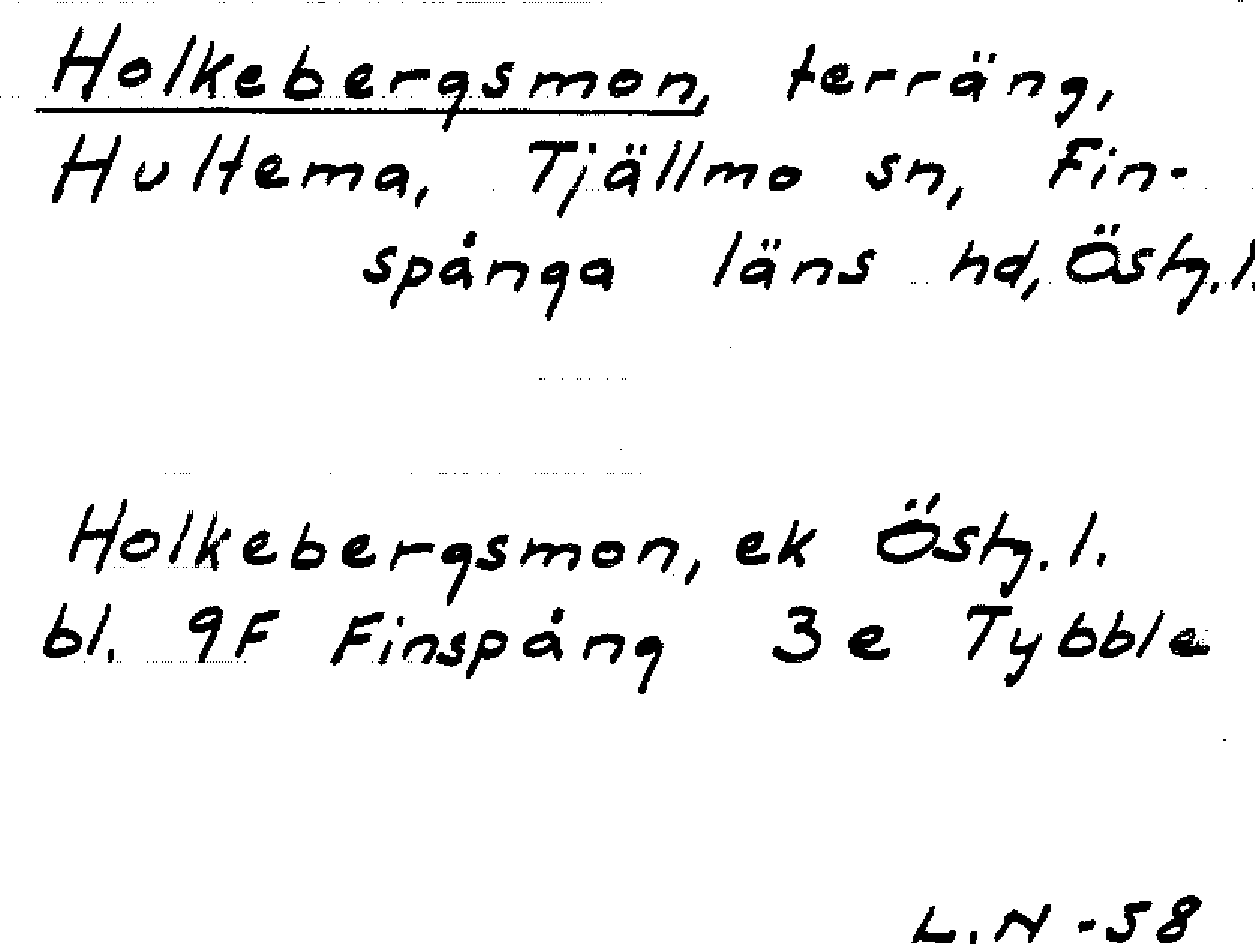 Holkebergsmon, terräng,
Hultema, Tjällmo sn, Fin-
spånga läns hd, Östg.l.
Holkebergsmon, ek Östg.l.
bl. 9F Finspång 3e Tybble
L.N -58